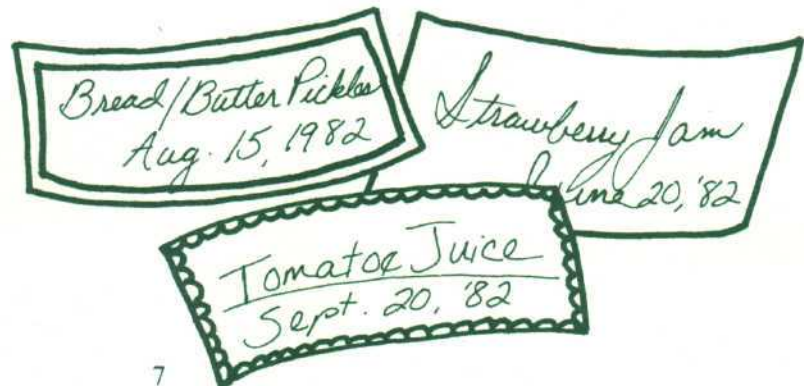 Bread/Butter Pickles
Aug. 15, 1982
Strawberry Jam
June 20, '82
Tomatoe Juice
Sept. 20, '82
7